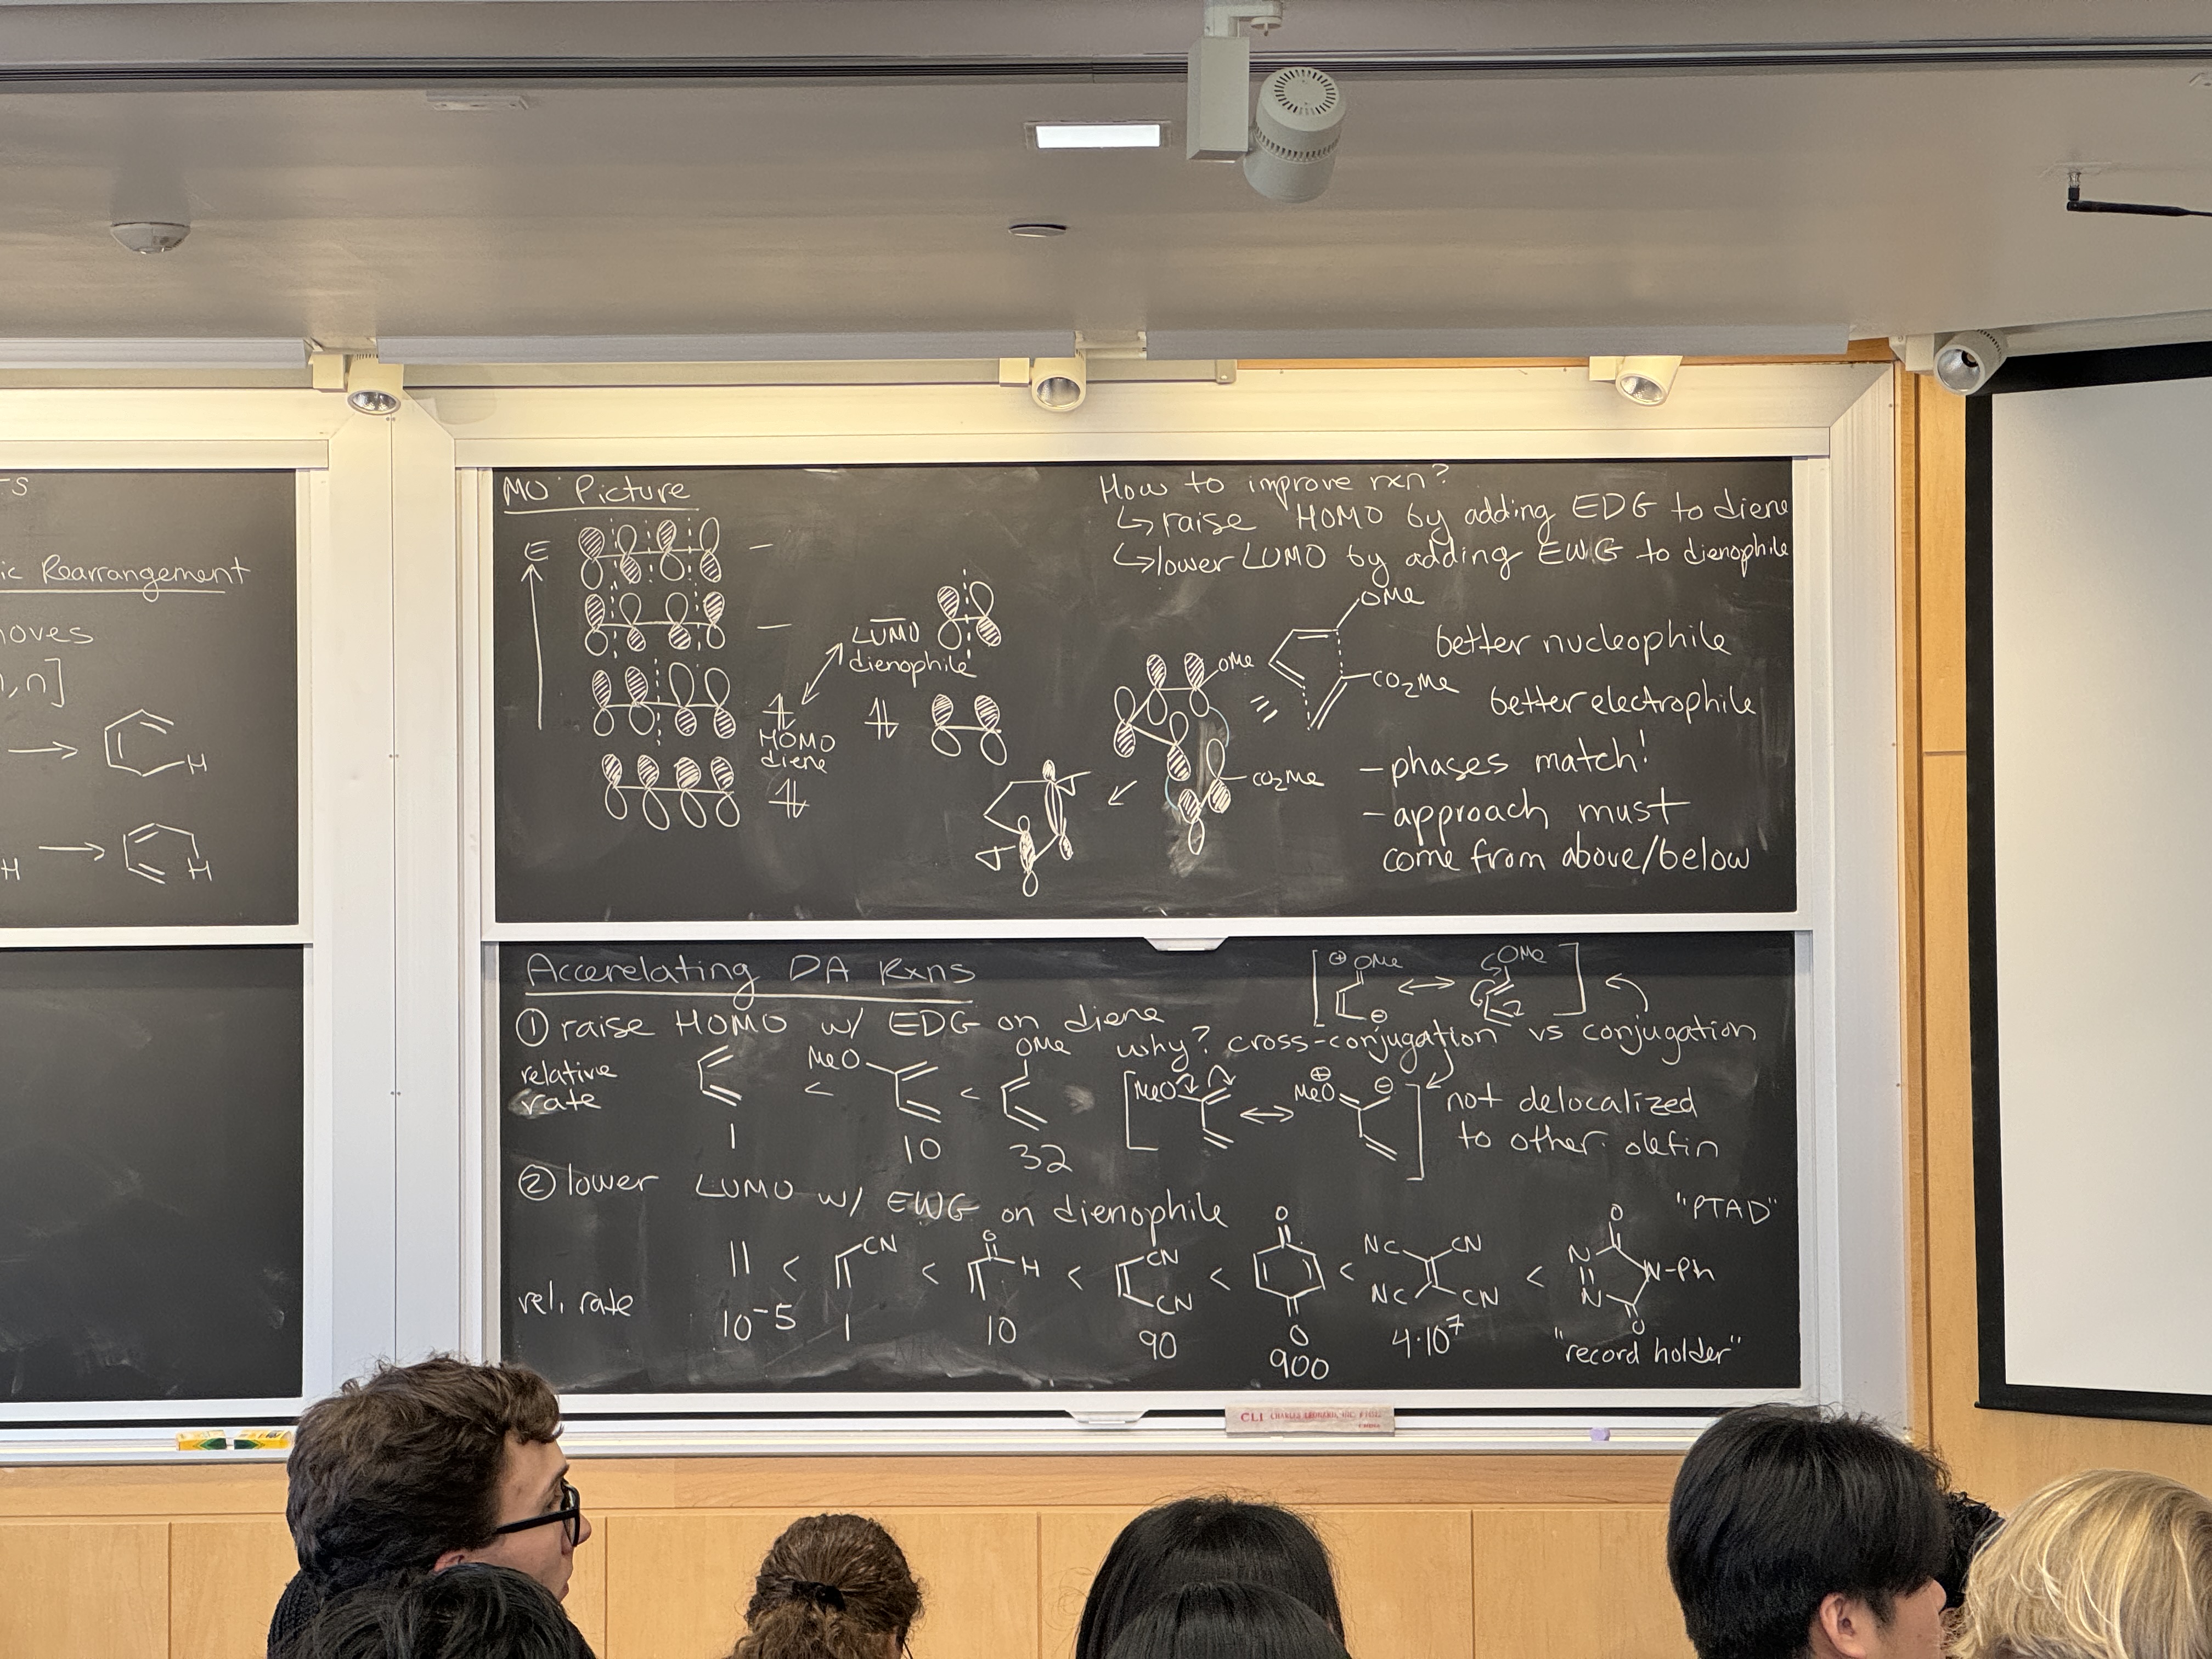 ic Rearrangement
oves
,n]
H
H
H
MO Picture
E
LUMO
dienophile
HOMO
diene
How to improve rxn?
↳ raise HOMO by adding EDG to diene
↳ lower LUMO by adding EWG to dienophile
OMe
OMe
CO2Me
CO2Me
better nucleophile
better electrophile
- phases match!
- approach must
come from above/below
Accerelating DA Rxns
① raise HOMO w/ EDG on diene
relative
rate
MeO
OMe
< <
1 10 32
⊕ OMe ↔ OMe
⊖
why? cross-conjugation vs conjugation
MeO ↔ MeO ⊕ ⊖
not delocalized
to other olefin
② lower LUMO w/ EWG on dienophile
"PTAD"
< CN < O H < CN CN < O O < NC CN NC CN < O N N N-Ph O
rel. rate
10⁻⁵ 1 10 90 900 4·10⁷ "record holder"
CLI